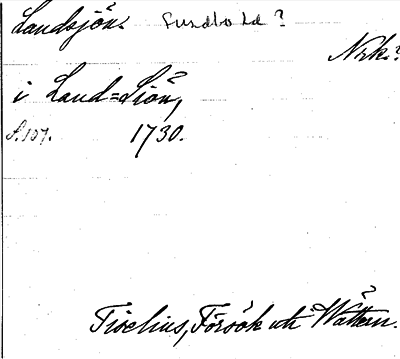 Landsjön. Sundbo hd?
Nrk.?
i Land=Siön,
S. 107. 1730.
Tiselius, Försök uti Wättern.